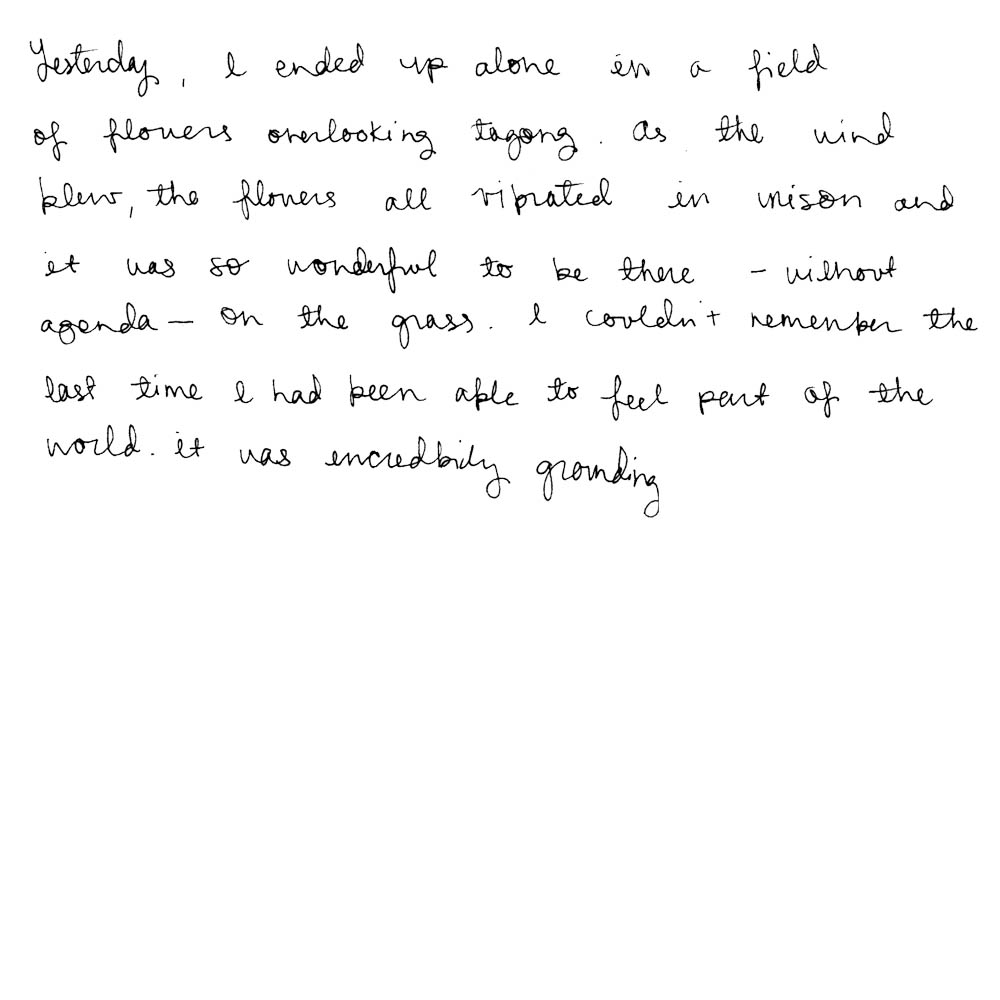 Yesterday, I ended up alone in a field
of flowers overlooking tagong. as the wind
blew, the flowers all vibrated in unison and
it was so wonderful to be there - without
agenda - on the grass. I couldn't remember the
last time I had been able to feel part of the
world. it was incredbily grounding